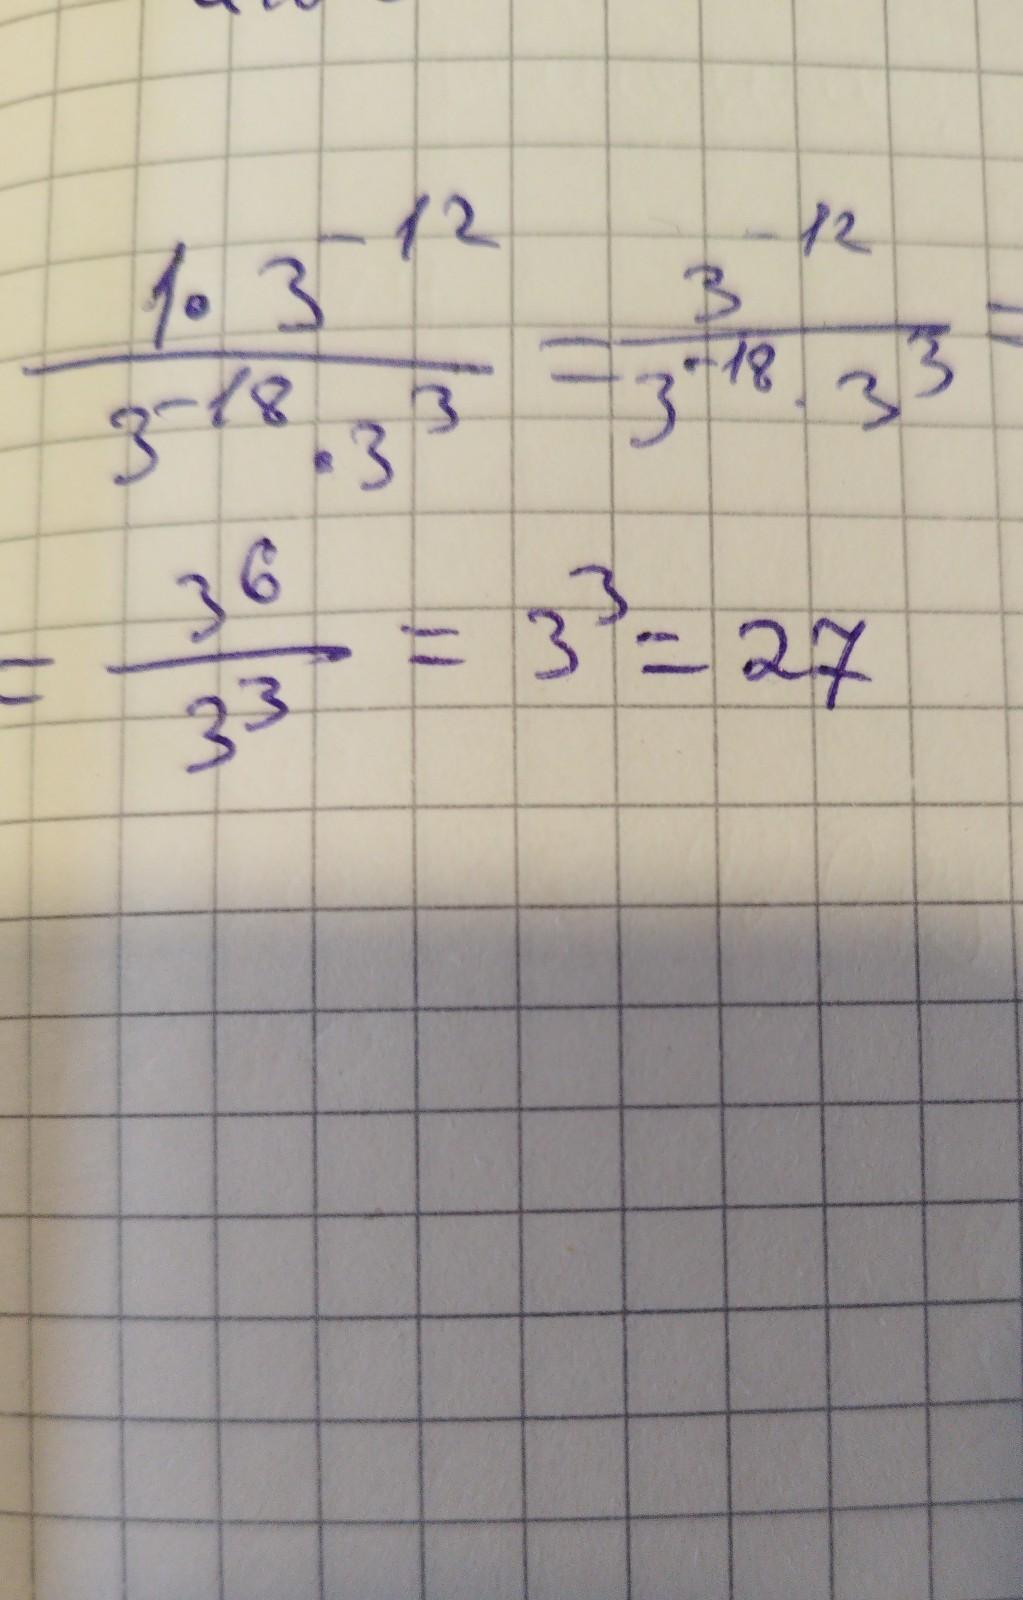 1·3⁻¹² / 3⁻¹⁸·3³ = 3⁻¹² / 3⁻¹⁸·3³ =
= 3⁶ / 3³ = 3³ = 27